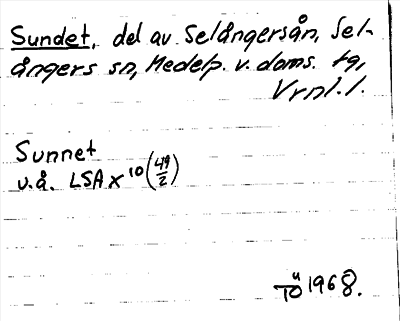 Sundet, del av Selångersån, Sel-
ångers sn, Medelp. v. doms. tg,
Vrnl. l.
Sunnet
u.å. LSA x 10 (49/2)
1968.